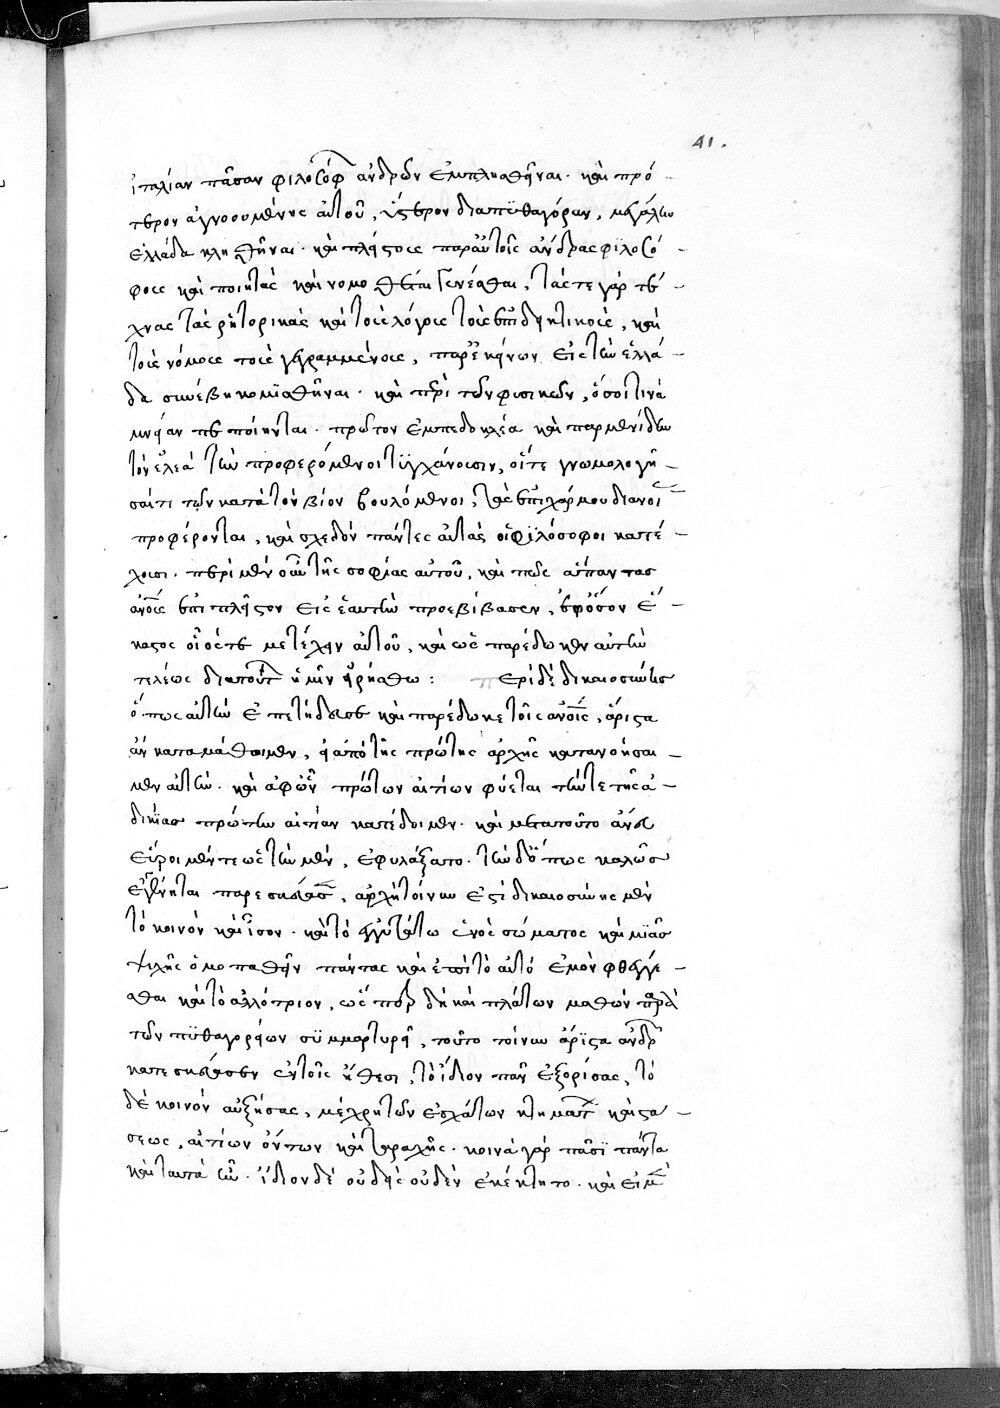 41.
ἰταλίαν πᾶσαν φιλοσόφων ἀνδρῶν ἐμπλησθῆναι. καὶ πρό-
τερον ἀγνοουμένης αὐτοῦ, ὕστερον διὰ πϋθαγόραν, μεγάλην
ἑλλάδα κληθῆναι. καὶ πλείστους παρ' αὐτοῖς ἄνδρας φϊλοσό-
φους καὶ ποιητὰς καὶ νομοθέτας γενέσθαι, τάς τε γὰρ τέ-
χνας τὰς ῥητορικὰς καὶ τοὺς λόγους τοὺς ἐπιδεικτικοὺς, καὶ
τοὺς νόμους τοὺς γεγραμμένους, παρ' ἐκείνων εἰς τὴν ἑλλά-
δα συνέβη κομϊσθῆναι. καὶ περὶ τῶν φυσικῶν, ὅσοι τινὰ
μνείαν πεποίηνται. πρῶτον ἐμπεδοκλέα καὶ παρμενίδην
τὸν ἐλεάτην προφερόμενοι τϋγχάνουσιν, οἵ τε γνωμολογῆ-
σαί τι τῶν κατὰ τὸν βίον βουλόμενοι, τὰς ἐπιχάρμου διανοίας
προφέρονται, καὶ σχεδὸν πάντες αὐτὰς οἱ φϊλόσοφοι κατέ-
χουσι. περὶ μὲν οὖν τῆς σοφίας αὐτοῦ, καὶ πῶς ἅπαντας
ἀνους ἐπιπλεῖστον εἰς ἑαυτὴν προεβίβασεν, ἐφ' ὅσον ἕ-
καστος οἷός τε μετέχειν αὐτοῦ, καὶ ὡς παρέδωκεν αὐτὴν
τελέως διὰ τούτων ἡμῖν εἰρήσθω: περὶ δὲ δικαιοσύνης
ὅπως αὐτὴν ἐπετήδευσε καὶ παρέδωκε τοῖς ἀνοις, ἄριστα
ἂν καταμάθοιμεν, εἰ ἀπὸ τῆς πρώτης ἀρχῆς κατανοήσαι-
μεν αὐτὴν. καὶ ἀφ' ὧν πρώτων αἰτίων φύεται τήν τε τῆς ἀ-
δικίας πρώτην αἰτίαν κατίδοιμεν. καὶ μετὰ τοῦτο ἂν
εὕροιμέν τε ὡς τὴν μὲν, ἐφυλάξατο. τὴν δ' ὅπως καλῶς
ἐγγένηται παρεσκεύασεν, ἀρχὴ τοίνυν ἐστὶ δικαιοσύνης μὲν
τὸ κοινὸν καὶ ἴσον. καὶ τὸ ἐγγυτάτω ἑνὸς σώματος καὶ μϊᾶς
ψυχῆς ὁμοπαθεῖν πάντας καὶ ἐπὶ τὸ αὐτὸ ἐμὸν φθέγγε-
σθαι καὶ τὸ ἀλλότριον, ὥσπερ δὴ καὶ πλάτων μαθὼν παρὰ
τῶν πϋθαγορείων συμμαρτυρεῖ, τοῦτο τοίνυν ἄριστα ἀνδρῶν
κατεσκεύασεν ἐν τοῖς ἤθεσι, τὸ ἴδιον πᾶν ἐξορίσας, τὸ
δὲ κοινὸν αὐξήσας, μέχρι τῶν ἐσχάτων κτημάτων καὶ στά-
σεως, αἰτίων ὄντων καὶ ταραχῆς. κοινὰ γὰρ πᾶσϊ πάντα
καὶ ταυτὰ ἦν. ἴδιον δὲ οὐδεὶς οὐδὲν ἐκέκτητο. καὶ εἰ μὲν